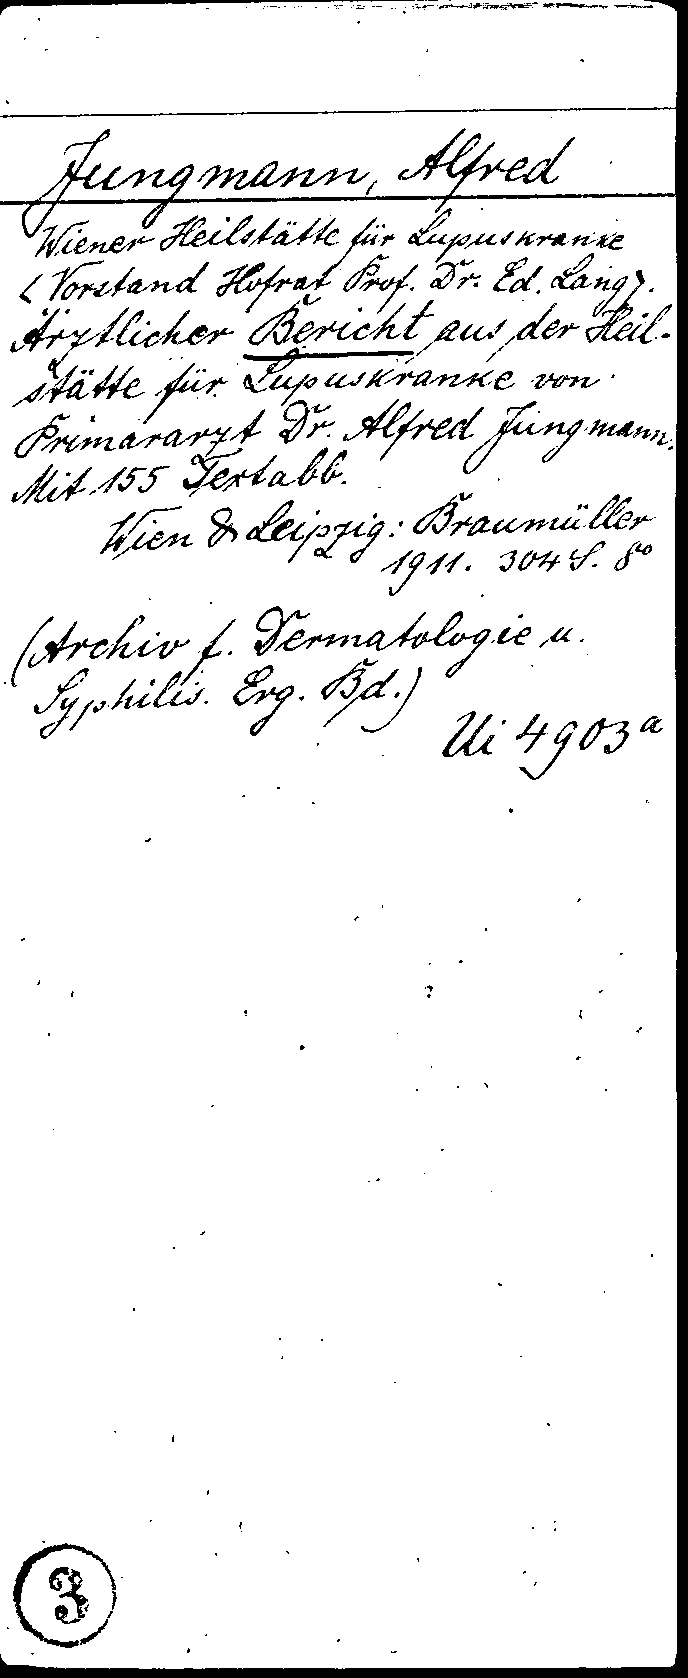 Jungmann, Alfred
Wiener Heilstätte für Lupuskranke
<Vorstand Hofrat Prof. Dr. Ed. Lang>.
Ärztlicher Bericht aus der Heil-
stätte für Lupuskranke von
Primararzt Dr. Alfred Jungmann.
Mit 155 Textabb.
Wien & Leipzig: Braumüller
1911. 304 S. 8°
(Archiv f. Dermatologie u.
Syphilis. Erg. Bd.)
Ui 4903a
3